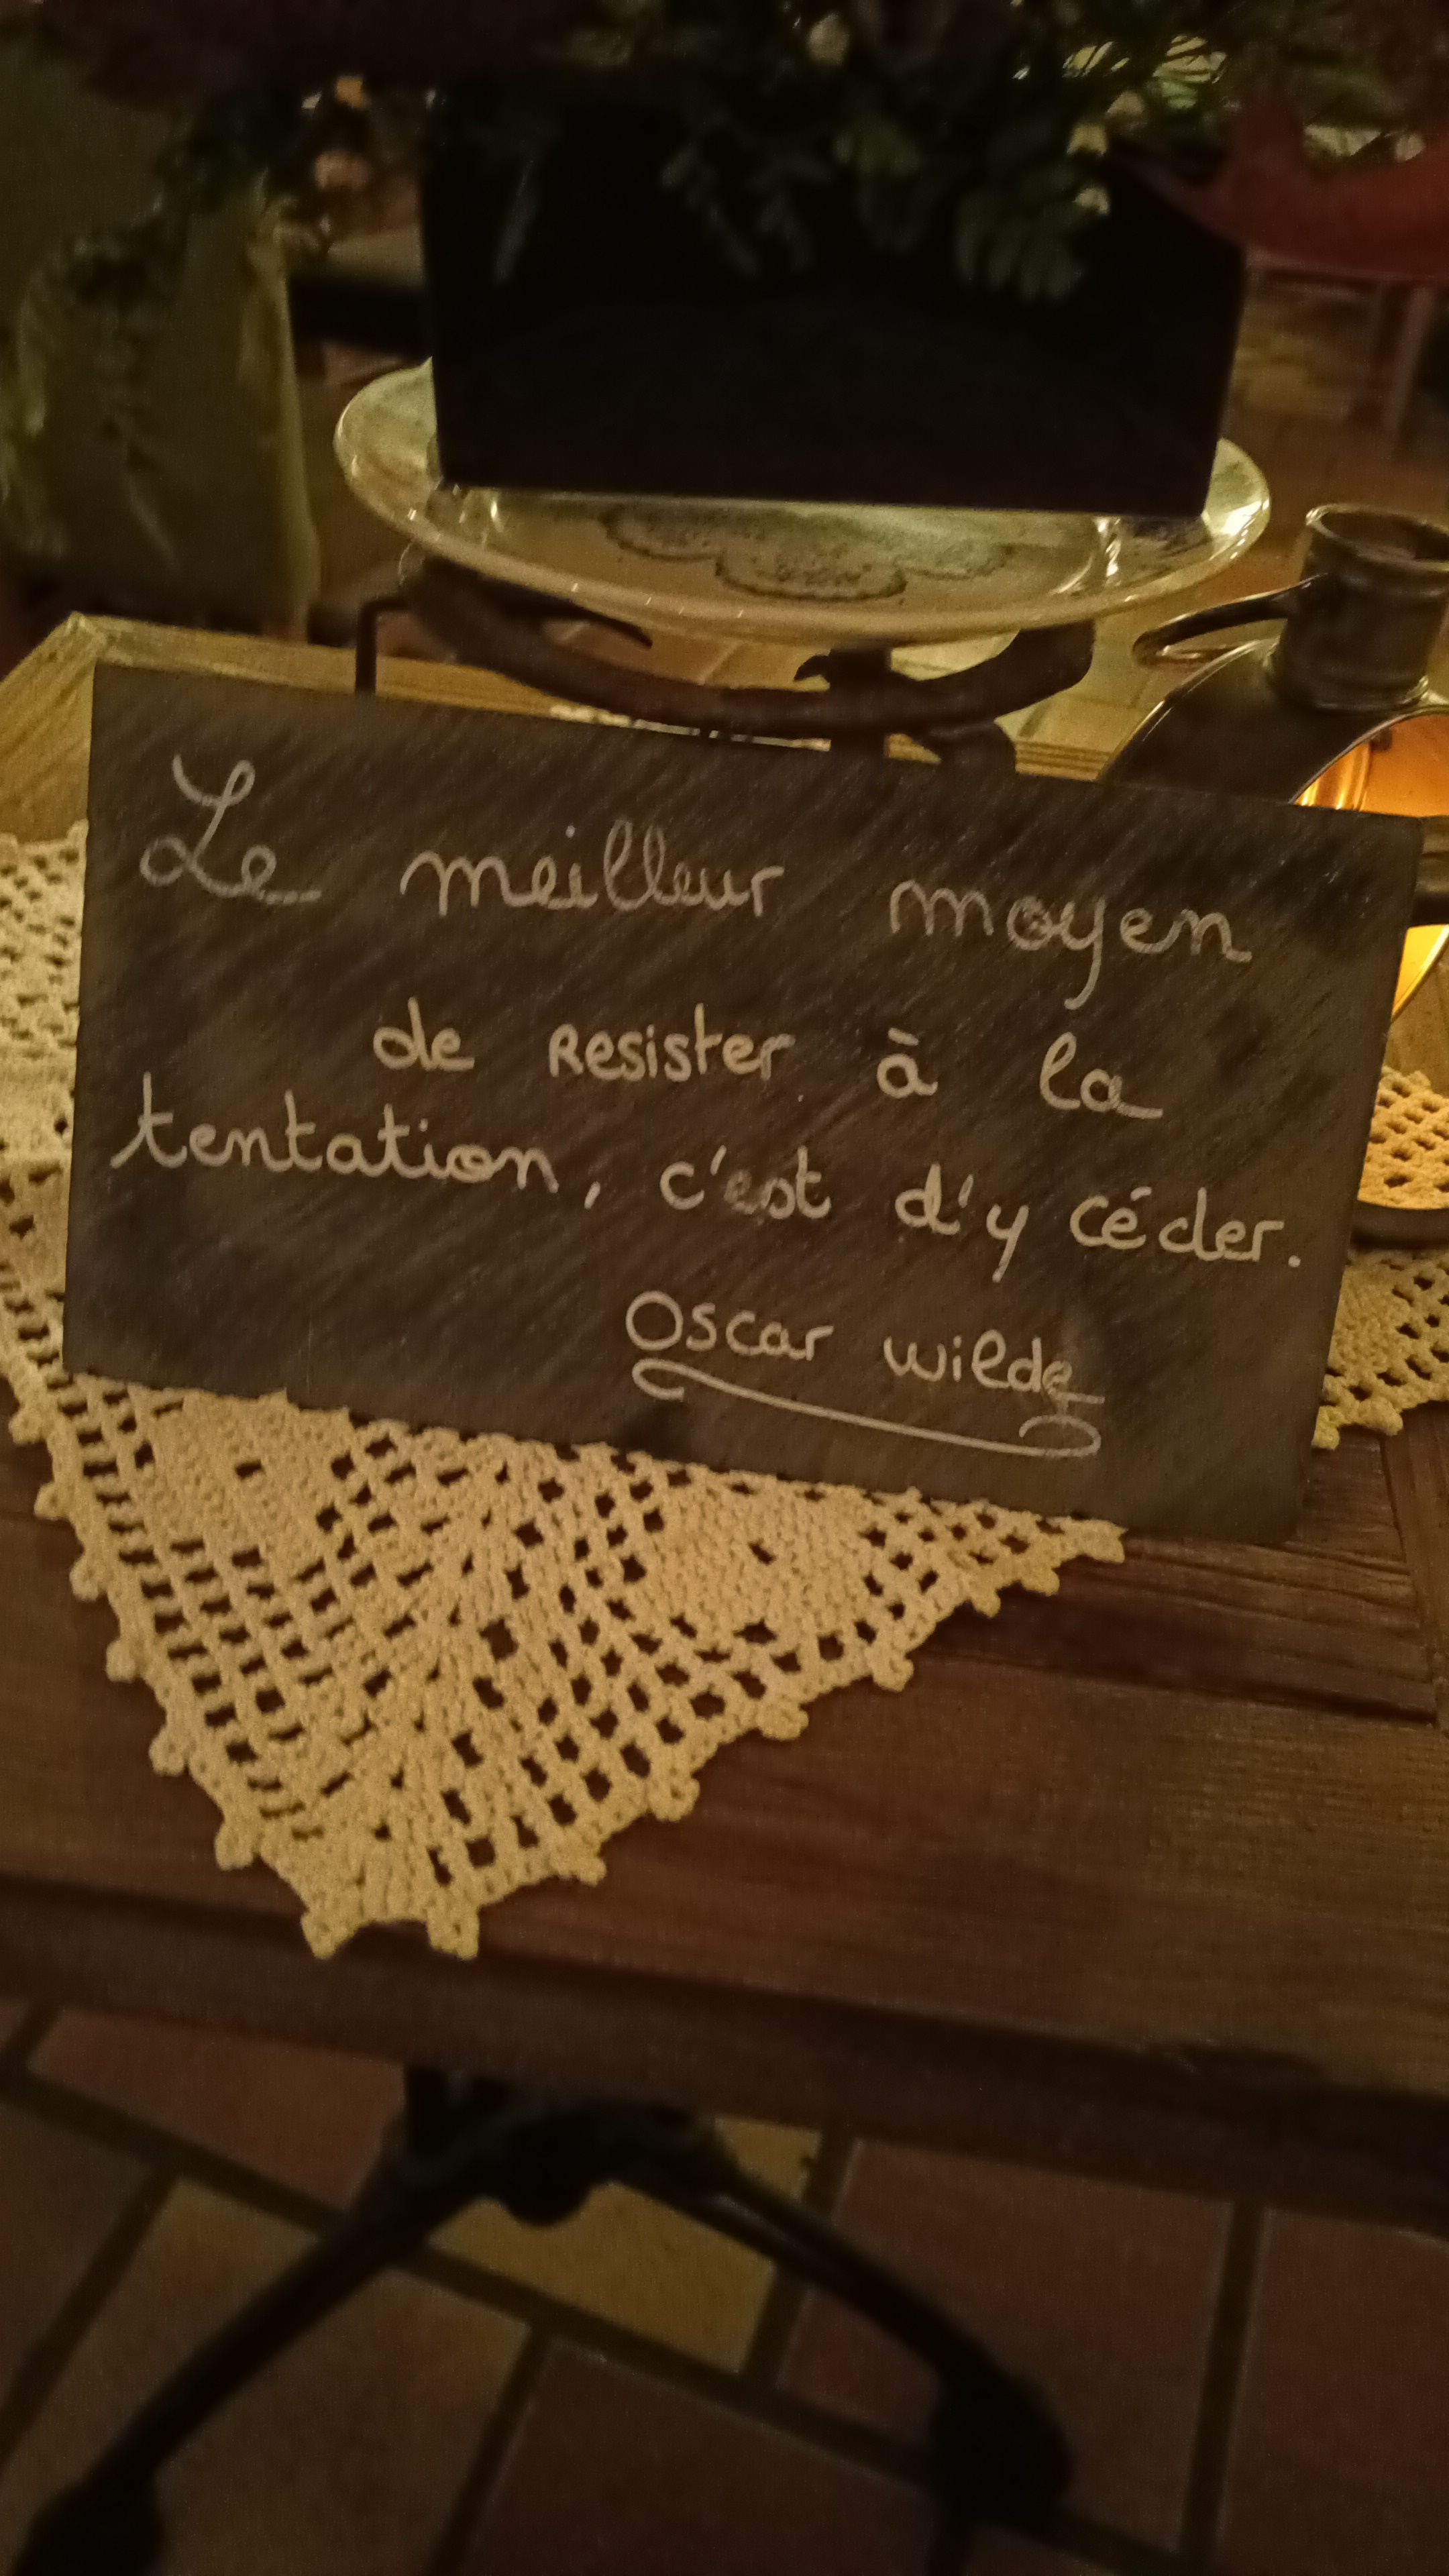 Le meilleur moyen
de Resister à la
tentation, c'est d'y céder.
Oscar wilde